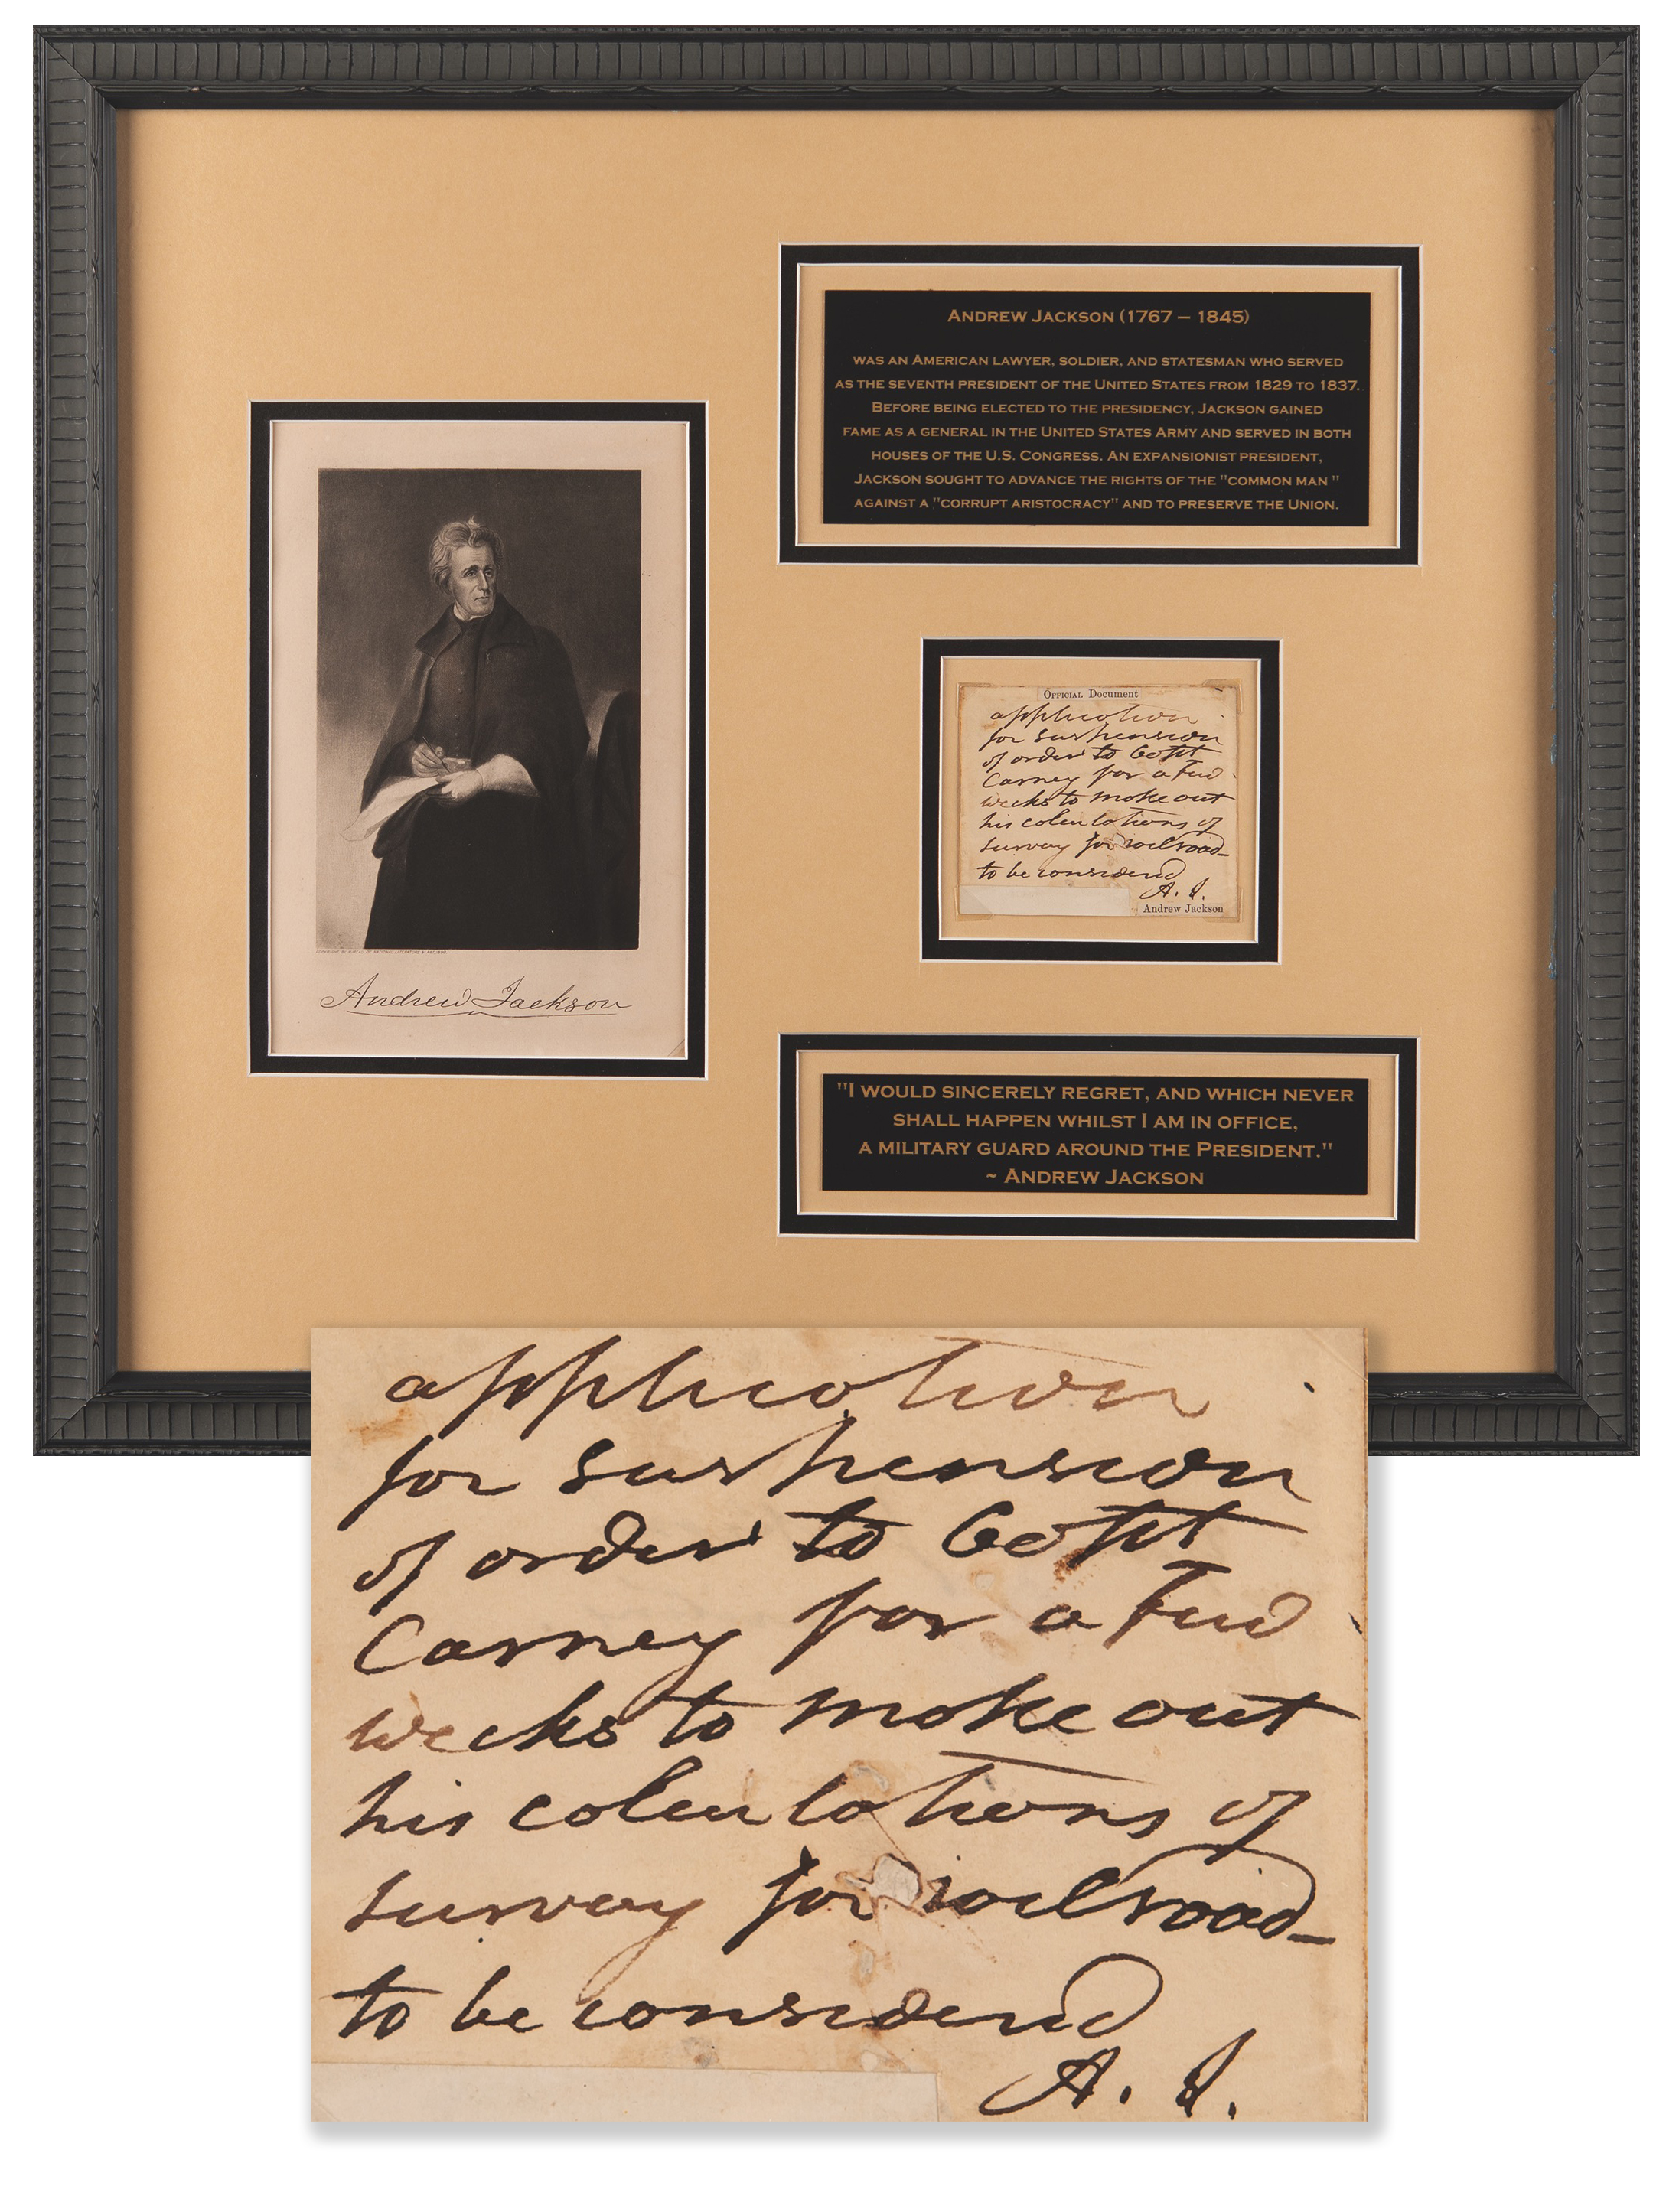 ANDREW JACKSON (1767 – 1845)
WAS AN AMERICAN LAWYER, SOLDIER, AND STATESMAN WHO SERVED
AS THE SEVENTH PRESIDENT OF THE UNITED STATES FROM 1829 TO 1837.
BEFORE BEING ELECTED TO THE PRESIDENCY, JACKSON GAINED
FAME AS A GENERAL IN THE UNITED STATES ARMY AND SERVED IN BOTH
HOUSES OF THE U.S. CONGRESS. AN EXPANSIONIST PRESIDENT,
JACKSON SOUGHT TO ADVANCE THE RIGHTS OF THE "COMMON MAN "
AGAINST A "CORRUPT ARISTOCRACY" AND TO PRESERVE THE UNION.
Andrew Jackson
OFFICIAL Document
application
for suspension
of order to Capt
Carney for a few
weeks to make out
his calculations of
survay for railroad_
to be considered
A. J.
Andrew Jackson
"I WOULD SINCERELY REGRET, AND WHICH NEVER
SHALL HAPPEN WHILST I AM IN OFFICE,
A MILITARY GUARD AROUND THE PRESIDENT."
~ ANDREW JACKSON
application
for suspension
of order to Capt
Carney for a few
weeks to make out
his calculations of
survay for railroad_
to be considered
A. J.